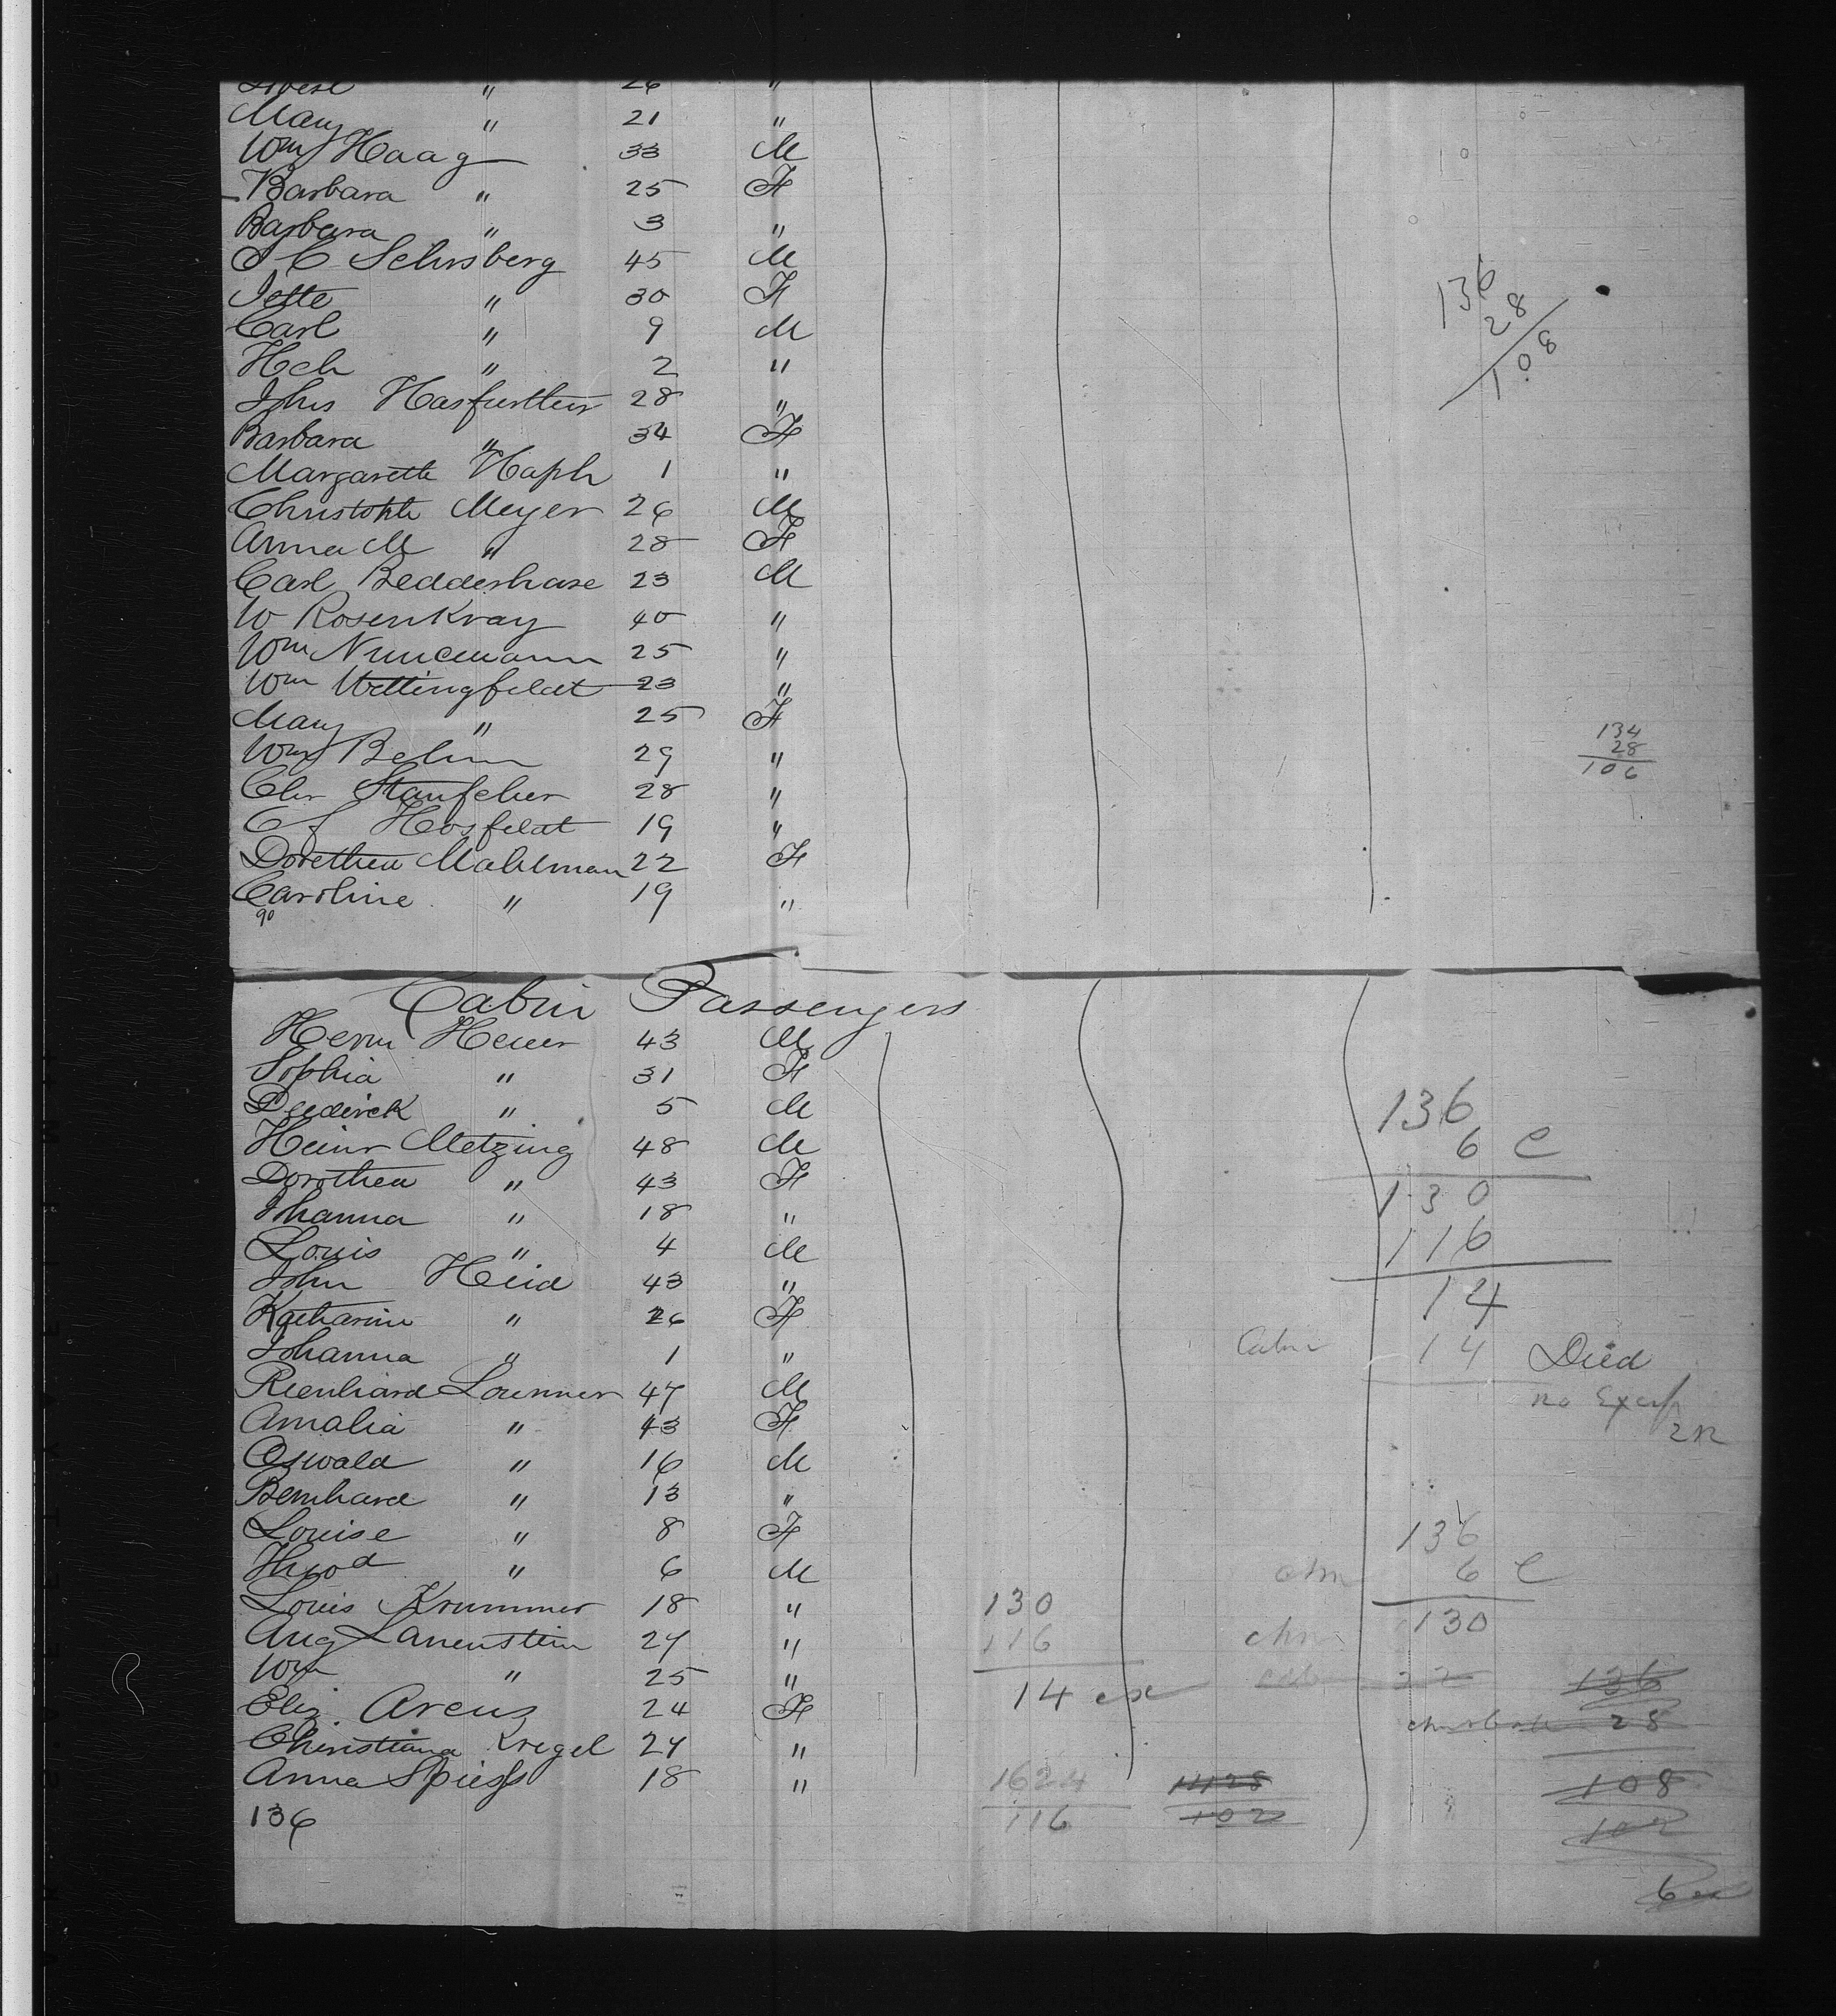 " 26 "
Mary " 21 "
Wm Haag 33 M
Barbara " 25 F
Barbara " 3 "
45 M
Jette " 30 F
Carl " 9 M
Hch " 2 "
Johs Hasfurther 28 "
Barbara " 34 F
Margarethe Haph 1 "
Christoph Meyer 26 M
Anna M " 28 F
Carl Beddeshase 23 M
W Rosenkray 40 "
Wm Nunemann 25 "
Wm Wettingfeldt 23 "
Mary " 25 F
Wm Behm 29 "
Chr Staufcher 28 "
Hosfeldt 19 "
Dorethea Mahlman 22 F
Caroline " 19 "
90
136
28
108
134
28
106
Cabin Passengers
Herm Heuer 43 M
Sophia " 31 F
Diederick " 5 M
Heinr Metzing 48 M
Dorothea " 43 F
Johanna " 18 "
Louis " 4 M
John Heid 43 "
Katharine " 26 F
Johanna " 1 "
Reinhard 47 M
Amalia " 43 F
Oswald " 16 M
Bernhard " 13 "
Louise " 8 F
Theod " 6 M
Louis Krummer 18 "
Aug Lanenstein 27 "
Wm " 25 "
Eliz Arens 24 F
Christiana Kregel 27 "
Anna Spiess 18 "
136
136
6 C
130
116
14
Cabin 14 Died
no
136
6 C
130
130
116
14 ex
22
136
28
108
102
6 ex
1624
116
1428
102